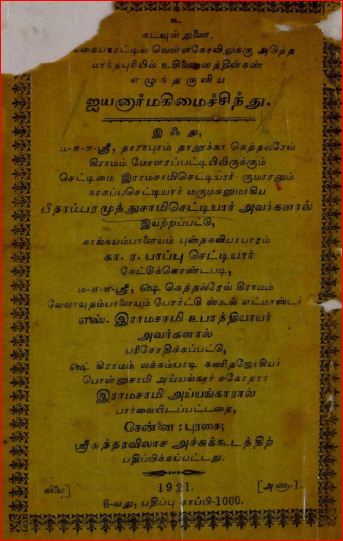 உ
கடவுள் துணை.
வெள்ளகோவிலுக்கு அடுத்த
எழுந்தருளிய
ஐயனார்மகிமைச்சிந்து.
இஃது,
ம-ள-ள-ஸ்ரீ, தாராபுரம் தாலூக்கா கெத்தல்ரேவ்
கிராமம் மேலாரப்பட்டியிலிருக்கும்
செட்டிமை இராமசாமிசெட்டியார் குமாரனும்
நாகப்பசெட்டியார் மருமகனுமாகிய
பீதாம்பரமுத்துசாமிசெட்டியார் அவர்களால்
இயற்றப்பட்டு,
காங்கயம்பாளையம் புஸ்தகவியாபாரம்
கா. ர. பாப்பு செட்டியார்
கேட்டுக்கொண்டபடி,
ம-ள-ள-ஸ்ரீ, ௸ கெத்தல்ரேவ் கிராமம்
வேலாயுதம்பாளையம் போர்ட்டு ஸ்கூல் எட்மாஸ்டர்
எஸ். இராமசாமி உபாத்தியாயர்
அவர்களால்
பரிசோதிக்கப்பட்டு,
௸ கிராமம் லக்கம்பாடி கணிதஜோதிஷர்
பொன்னுசாமி அய்யங்கார் சகோதரர்
இராமசாமி அய்யங்காரால்
பார்வையிடப்பட்டதை,
சென்னை: புரசை;
ஸ்ரீசுந்தரவிலாச அச்சுக்கூடத்திற்
பதிப்பிக்கப்பட்டது.
விலை] 1921. [அணா-1.
8-வது; பதிப்பு காப்பி-1000.